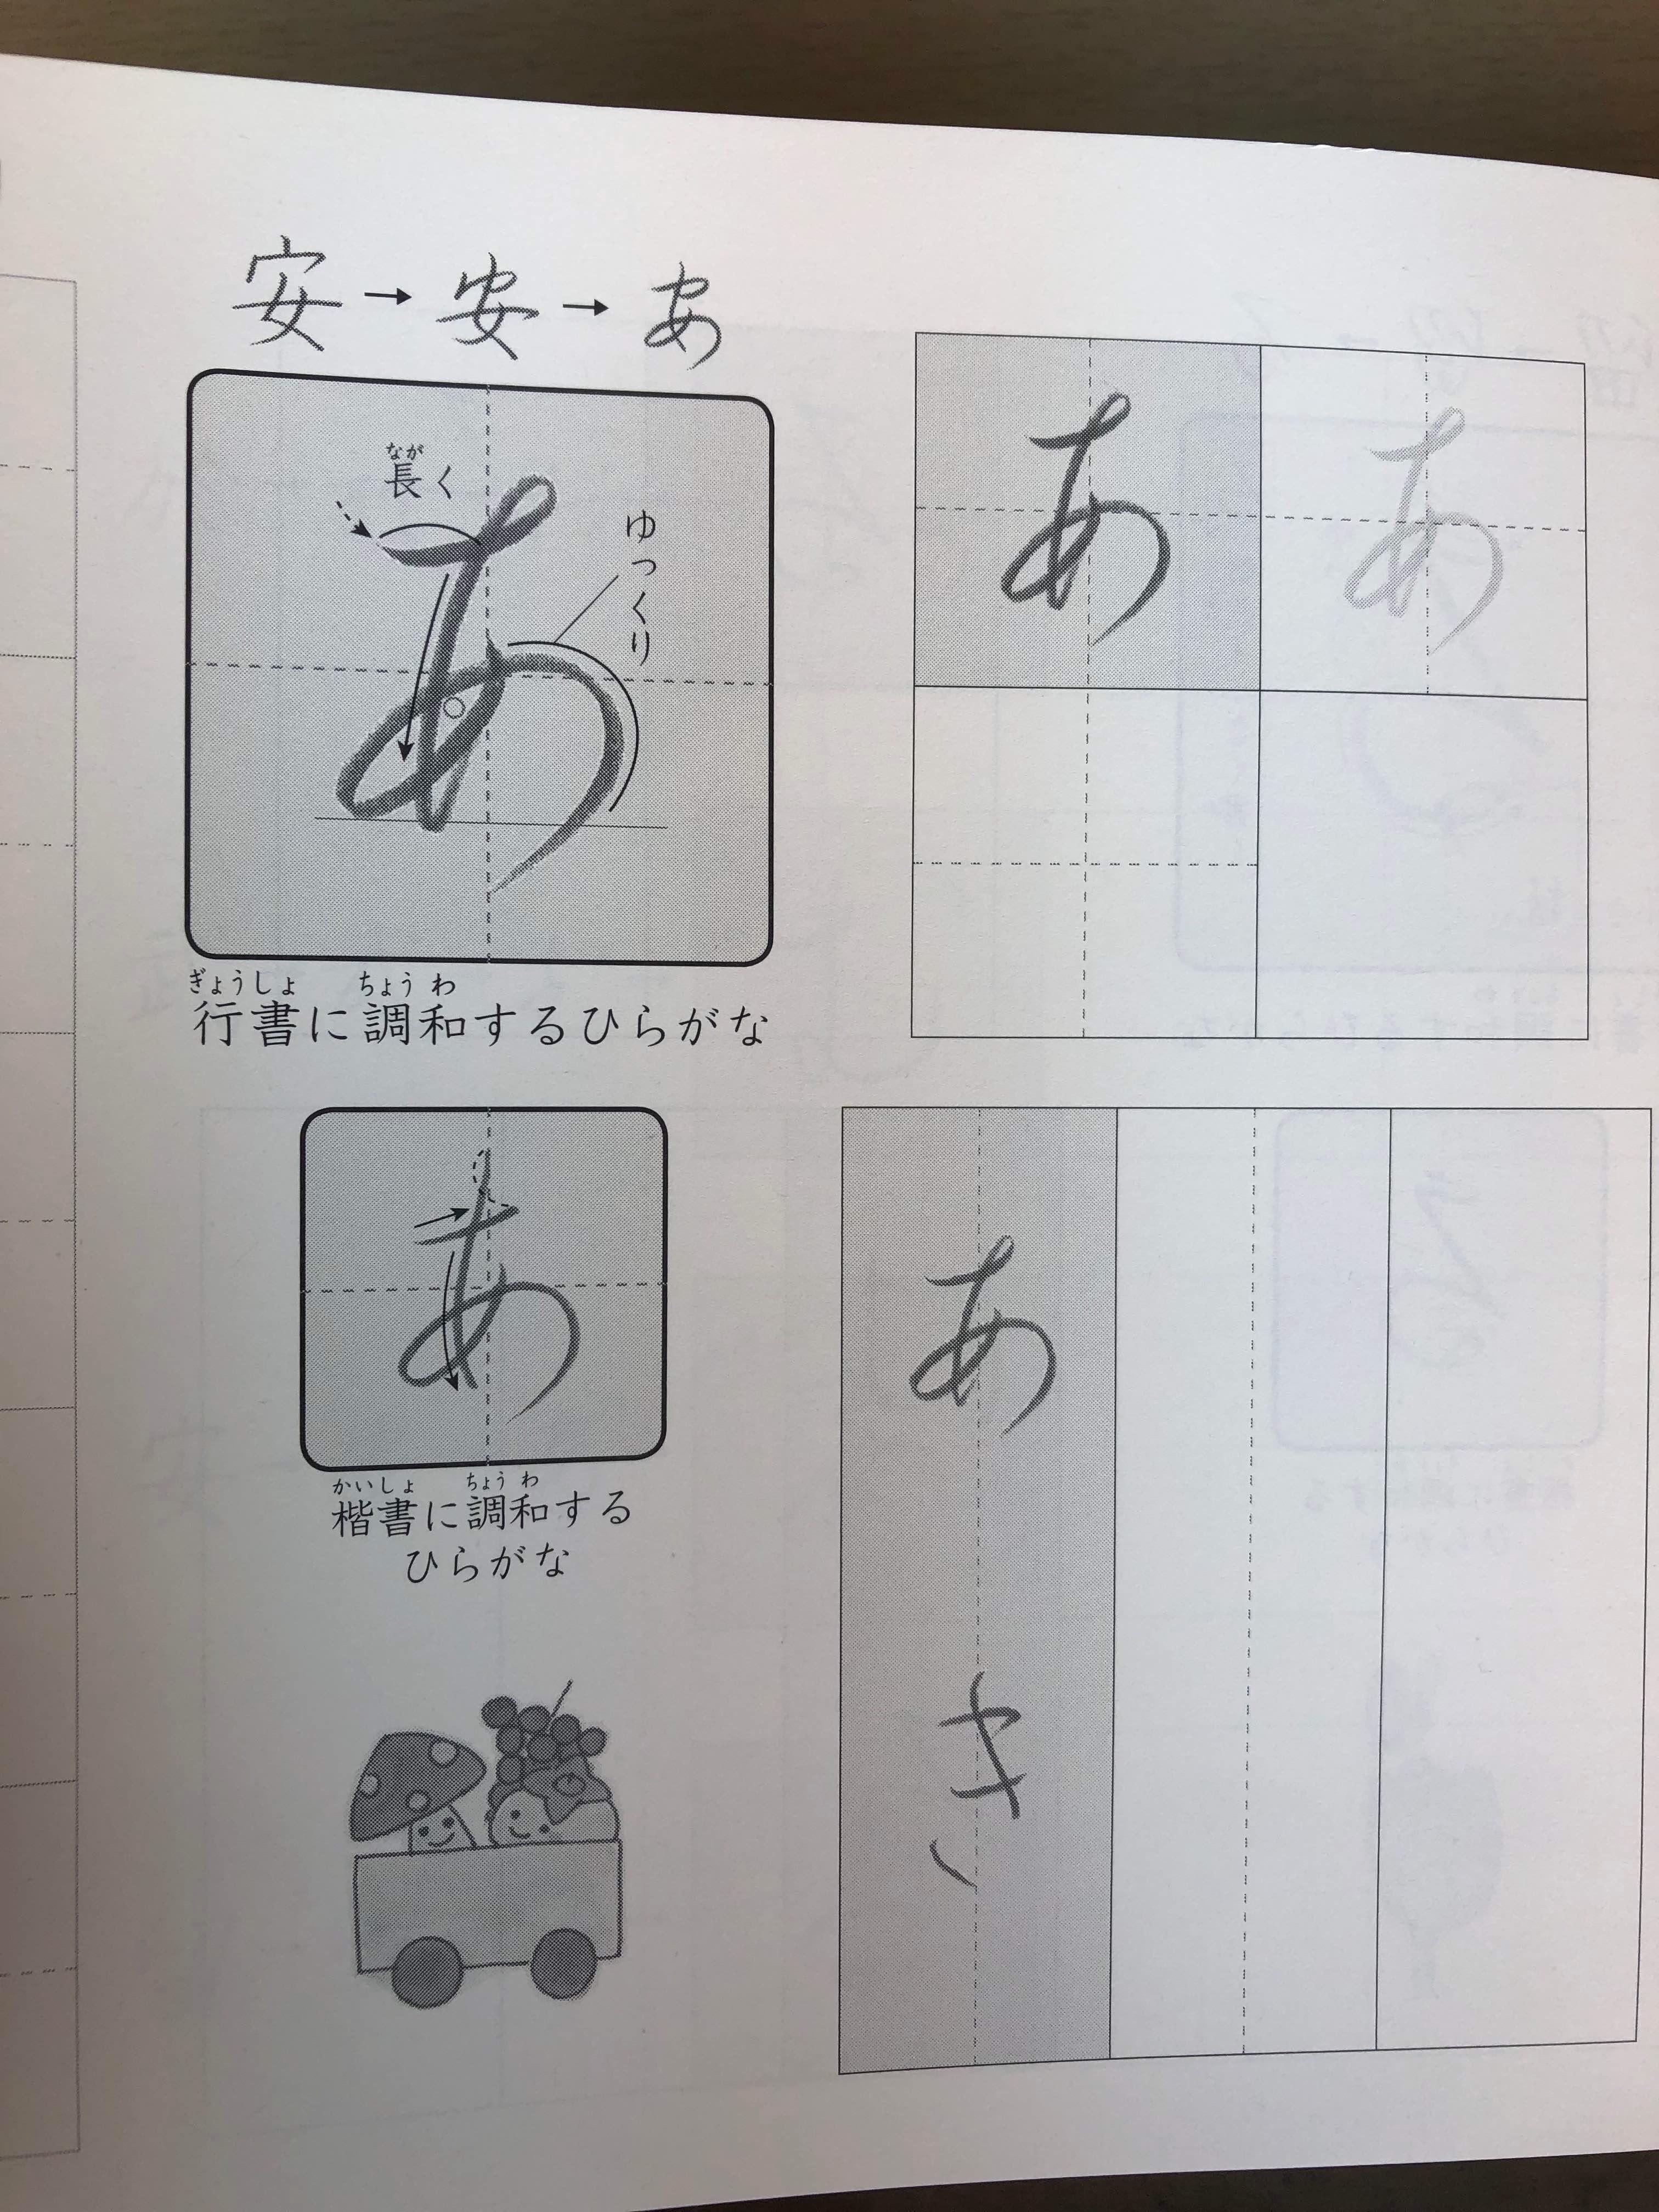 安→安→あ
なが
長く
ゆっくり
あ
ぎょうしょ ちょうわ
行書に調和するひらがな
あ
かいしょ ちょうわ
楷書に調和する
ひらがな
あ あ
あき